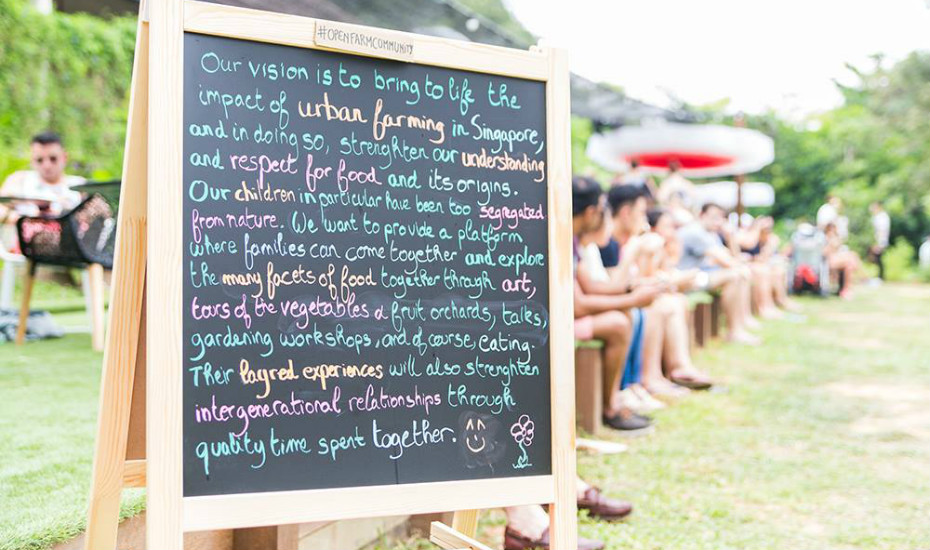 #OPENFARMCOMMUNITY
Our vision is to bring to life the
impact of urban farming in Singapore,
and in doing so, strenghten our understanding
and respect for food and its origins.
Our children in particular have been too segregated
from nature. We want to provide a platform
where families can come together and explore
the many facets of food together through art,
tours of the vegetables & fruit orchards, talks,
gardening workshops, and of course, eating.
Their layred experiences will also strenghten
intergenerational relationships through
quality time spent together.